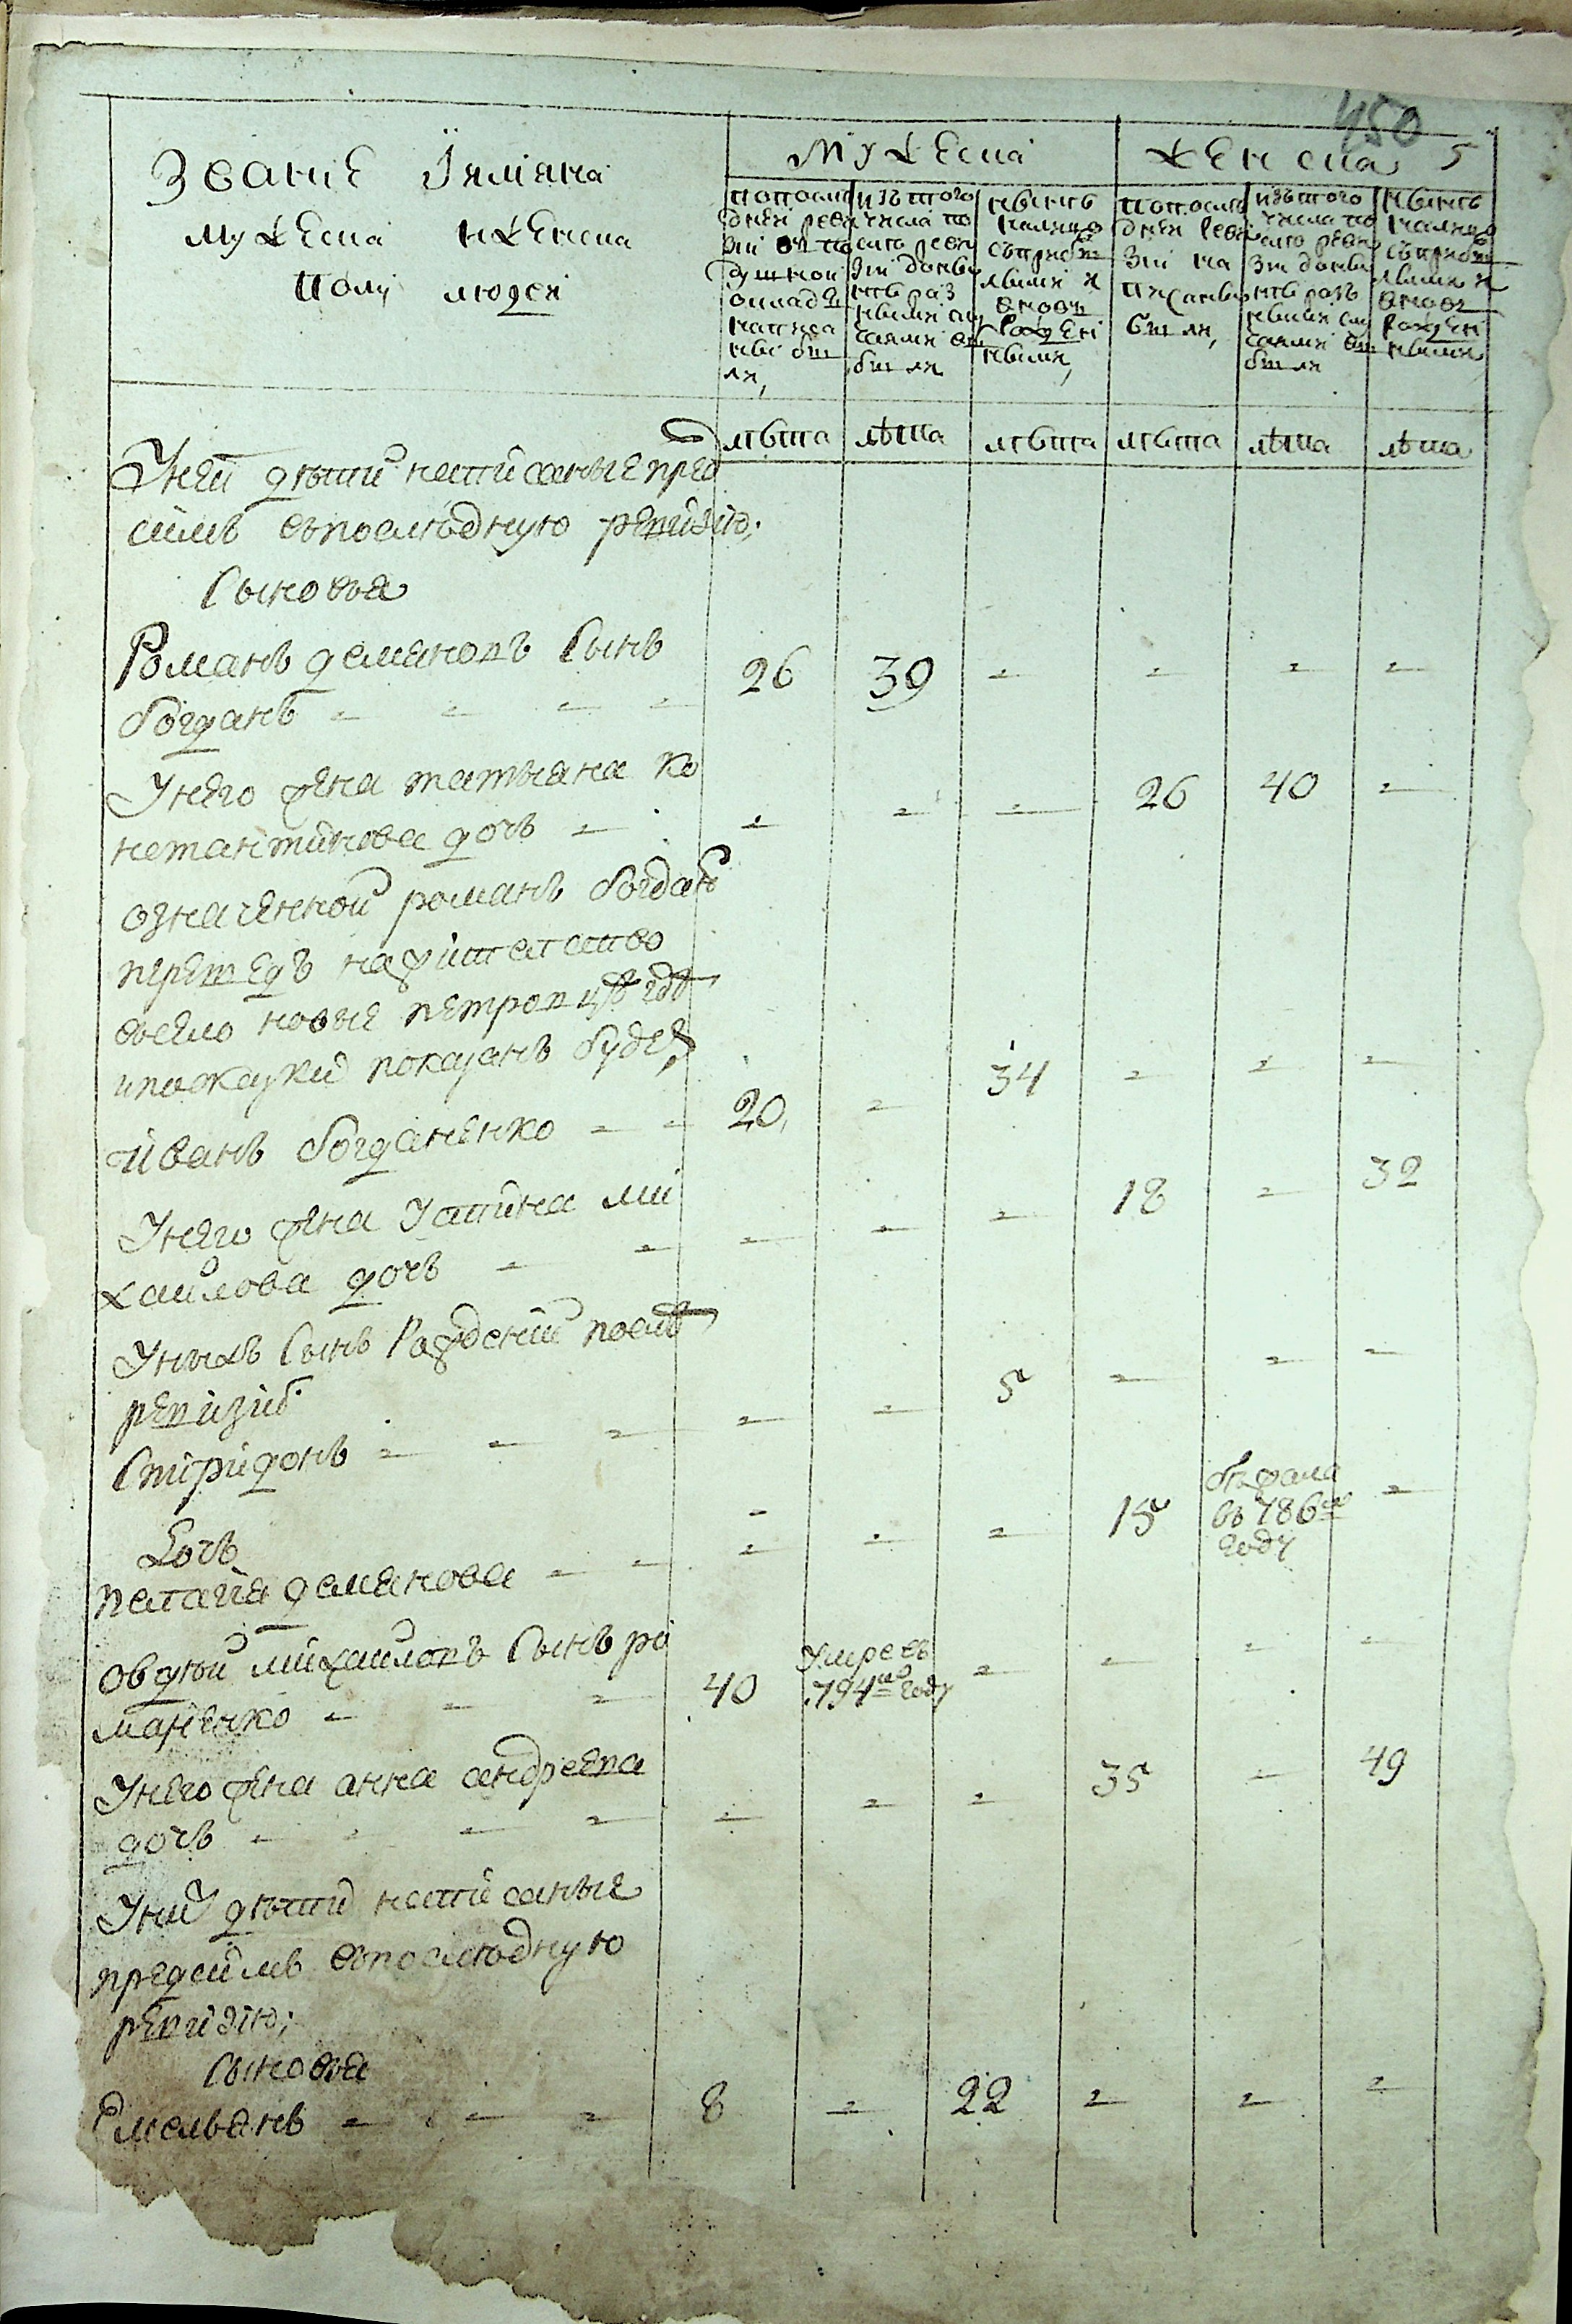 450
5
Званіе Ӥимяна
мужеска иженска
полу людей
Мужеска
женска
попослѣ
дней реви
зіи въ по
душной
окладъ
написа
ны бы
ли,
изътого
числа по
слѣ реви
зіи до
нѣ раз
ными слу
чаями вы
были
нынѣ
налицо
съприбы
лыми и
вновь
рожден
ными,
попослѣ
дней реви
зіи на
писаны
были,
изътого
числа по
слѣ реви
зіи до
нѣ разъ
ными слу
чаями вы
были
нынѣ
налицо
съприбы
лыми и
вновь
рожден
ными
лѣта лѣта лѣта лѣта лѣта лѣта
Уней дѣти написаные пред
симъ въпослѣдную ревизію;
Сыновья
Романъ демяновъ Сынъ
богданъ 26 39
Унего жена татьяна ко
нстантинова дочъ 26 40
означенной романъ богдан
перешедъ нажителство
всело новые петров
показанъ будет
иванъ богданенко 20, 34
Унего жена Устина ми
хайлова дочъ 18 32
Унихъ Сынъ Рожденій послѣ
ревизіи
Спиридонъ 5
Дочъ
пелагія демянова 15 бѣжала
въ 786м
году
овдѣй михайловъ Сынъ ро
маненко 40 Умре въ
794м году
Унего жена анна андреева
дочъ 35 49
Уних дѣти написаные
предсимъ въпослѣдную
ревизію;
Сыновья
Емельянъ 8 22